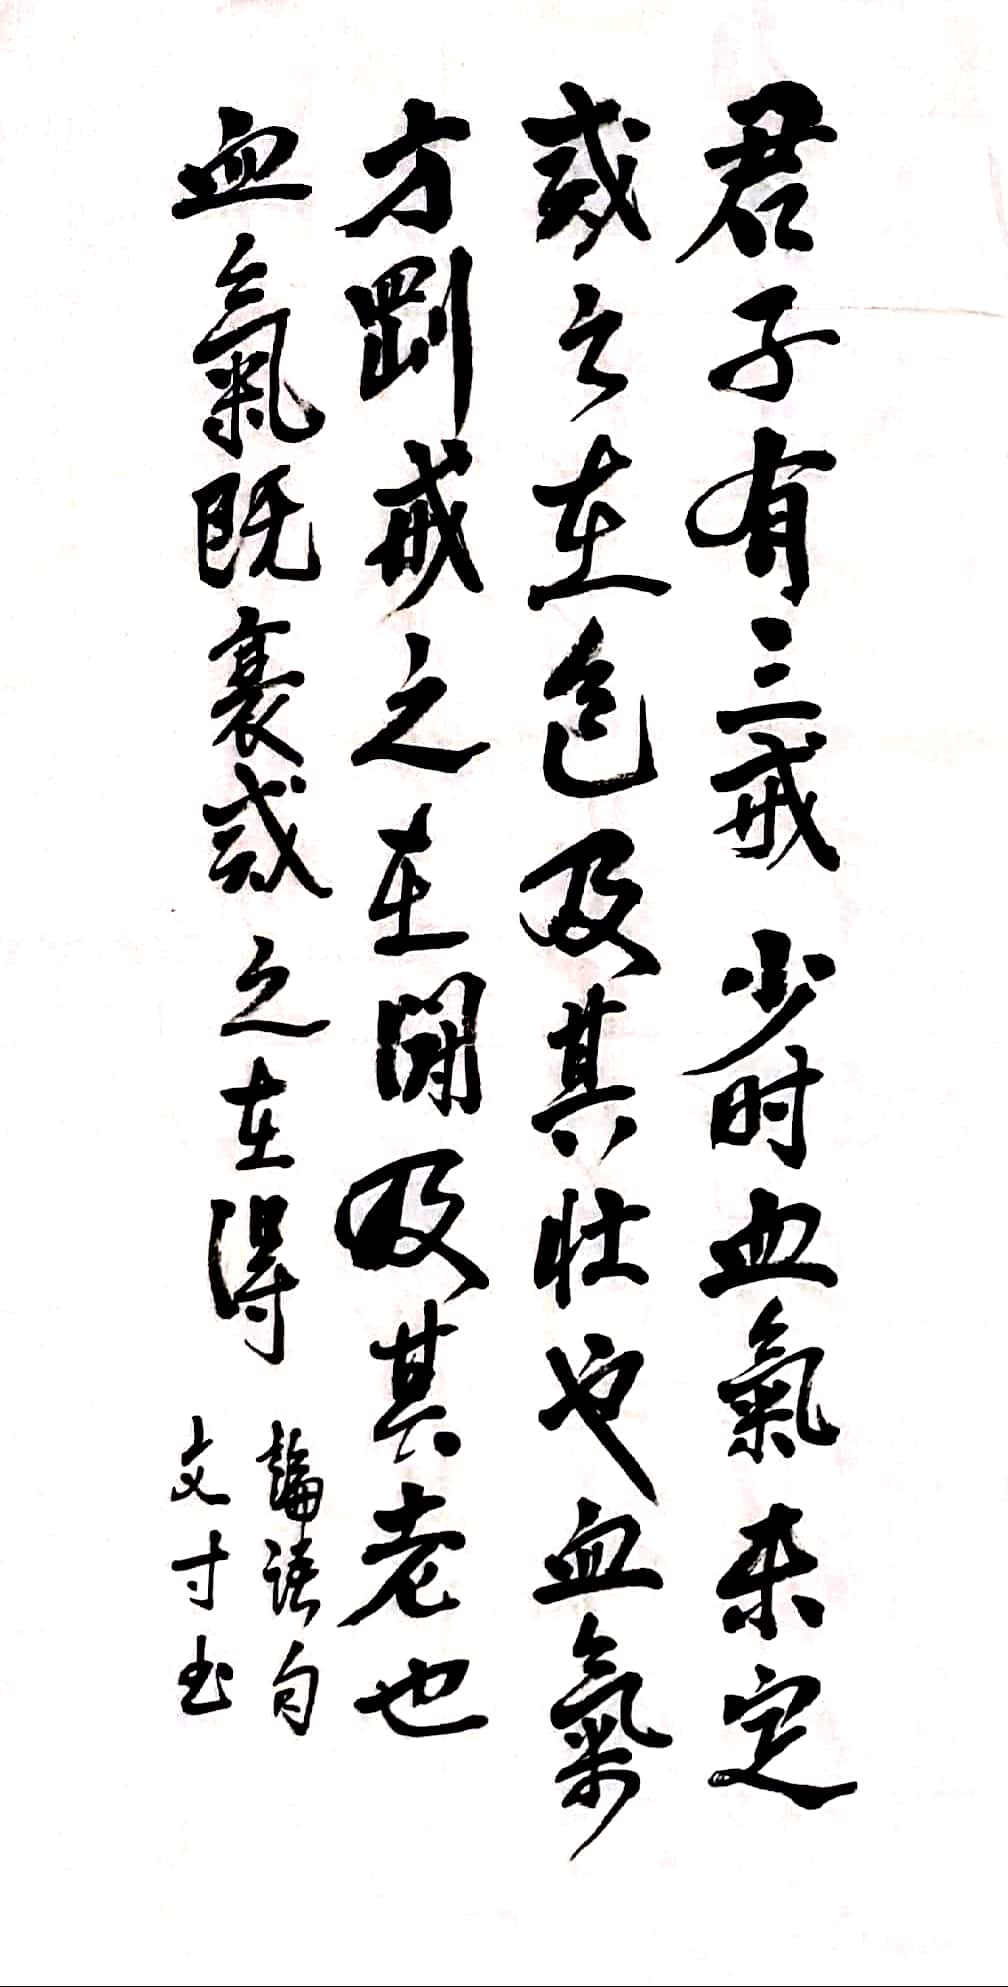 君子有三戒少时血氣未定
戒之在色及其壮也血氣
方剛戒之在閗及其老也
血氣既衰戒之在得
論语句
文寸书